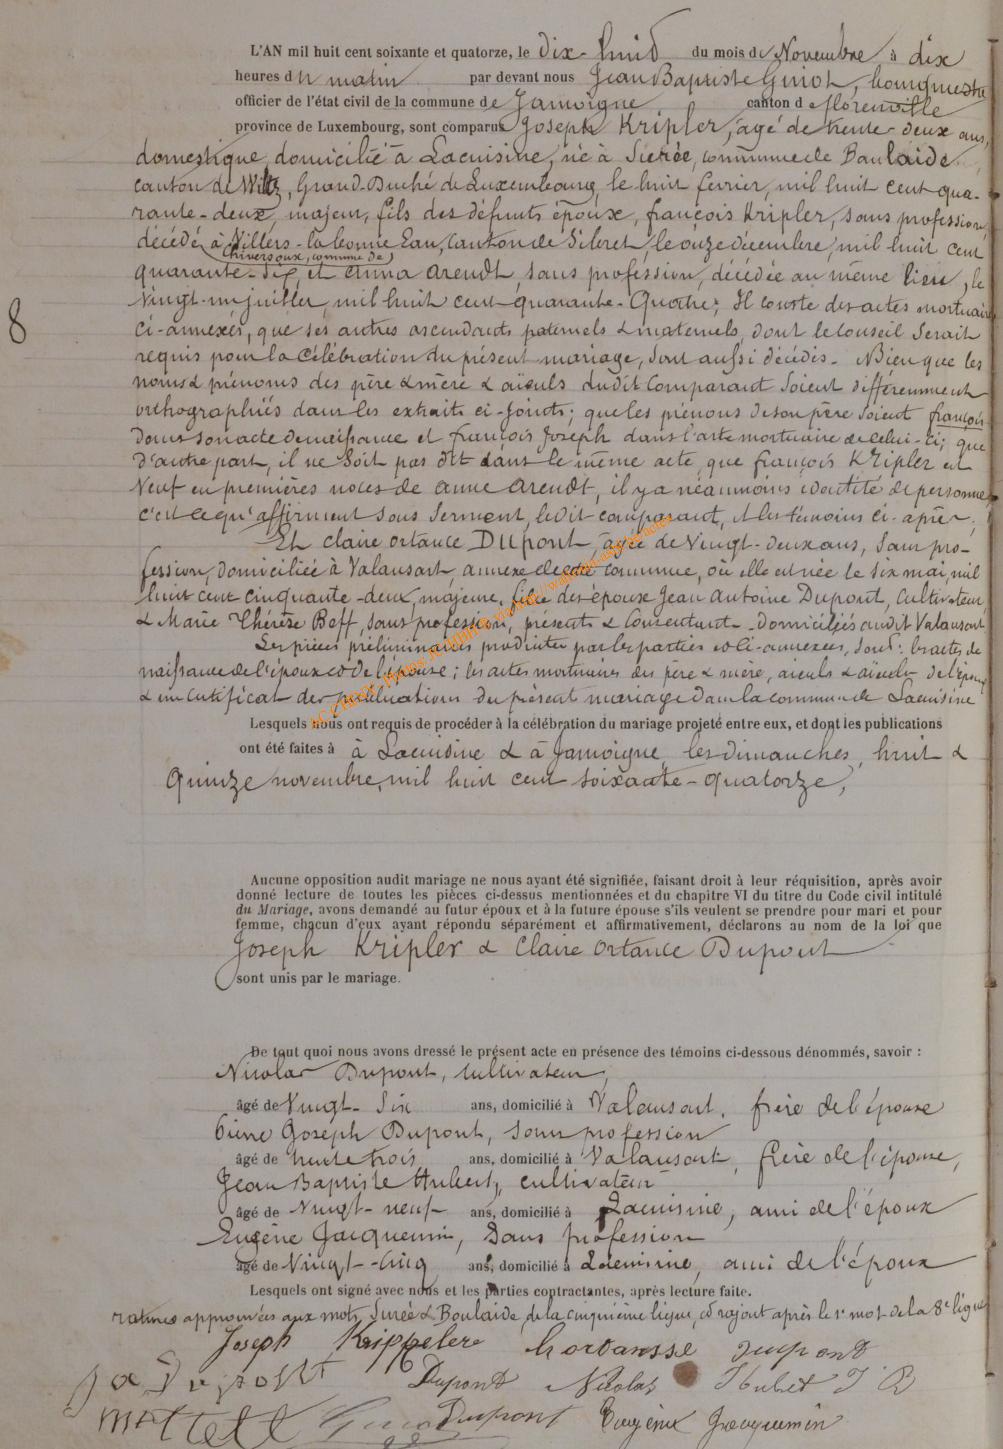 8
L'AN mil huit cent soixante et quatorze, le dix-huit du mois de Novembre à dix
heures du matin par devant nous Jean Baptiste Guiot, bourgmestre
officier de l'état civil de la commune de Jamoigne, canton de florenville
province de Luxembourg, sont comparus Joseph Kripler, âgé de trente-deux ans,
domestique, domicilié à Lacuisine, né à Surée, commune de Boulaide
canton de Wiltz, Grand-Duché de Luxembourg, le huit fevrier, mil huit cent qua-
rante-deux, majeur, fils des défunts époux, françois Kripler, sans profession,
décédé à Villers-la-bonne Eau, Canton de Sibret, le onze décembre, mil huit cent
commune de
quarante-six, et Anna Arendt, sans profession, décédée au même lieu, le
Vingt-un juillet mil huit cent quarante-Quatre; Il conste des actes mortuaires
ci-annexés, que ses autres ascendants paternels & maternels, dont le conseil serait
requis pour la Célébration du présent mariage, sont aussi décédés. Bien que les
noms & prénoms des père & mère & aïeuls dudit Comparant soient différemment
orthographiés dans les extraits ci-joints; que les prénoms de son père soient françois
dans son acte de naissance et françois Joseph dans l'acte mortuaire de celui-ci; que
d'autre part, il ne soit pas dit dans le même acte, que françois Kripler est
Veuf en premières noces de Anne Arendt, il y a néanmoins identité de personne
c'est ce qu'affirment sous serment, ledit comparant, et les témoins ci-après;
Et Claire ortance Dupont, âgée de Vingt-deux ans, sans pro-
fession, domiciliée à Valansart, annexe de cette commune, où elle est née le six mai, mil
huit cent cinquante-deux, majeure, fille des époux Jean Antoine Dupont, Cultivateur,
& Marie Thérèse Beff, sans profession, présents & Consentant - domiciliés audit Valansart
Les pièces préliminaires produites par les parties et ci-annexées, sont: les actes de
naissance de l'époux et de l'épouse; les actes mortuaires des père & mère, aïeuls & aïeules de l'époux
& un certificat des publications du présent mariage dans la commune de Lacuisine
Lesquels nous ont requis de procéder à la célébration du mariage projeté entre eux, et dont les publications
ont été faites à à Lacuisine & à Jamoigne, les dimanches, huit &
Quinze novembre, mil huit cent soixante-quatorze,
Aucune opposition audit mariage ne nous ayant été signifiée, faisant droit à leur réquisition, après avoir
donné lecture de toutes les pièces ci-dessus mentionnées et du chapitre VI du titre du Code civil intitulé
du Mariage, avons demandé au futur époux et à la future épouse s'ils veulent se prendre pour mari et pour
femme, chacun d'eux ayant répondu séparément et affirmativement, déclarons au nom de la loi que
Joseph Kripler & Claire Ortance Dupont
sont unis par le mariage.
De tout quoi nous avons dressé le présent acte en présence des témoins ci-dessous dénommés, savoir :
Nicolas Dupont, cultivateur,
âgé de Vingt-six ans, domicilié à Valansart, frère de l'épouse
Pierre Joseph Dupont, sans profession
âgé de trente trois ans, domicilié à Valansart, frère de l'épouse,
Jean Baptiste Hubert, cultivateur
âgé de Vingt-neuf ans, domicilié à Lacuisine, ami de l'époux
Eugène Jacquemin, sans profession
âgé de Vingt-cinq ans, domicilié à Lacuisine, ami de l'époux
Lesquels ont signé avec nous et les parties contractantes, après lecture faite.
ratures approuvées aux mots Surée & Boulaide, de la cinquième ligne, et rajout après le 1er mot de la 8e ligne
Joseph Krippelere hortansse dupont
Dupont Nicolas Hubert J B
Dupont Eugène Jacquemin